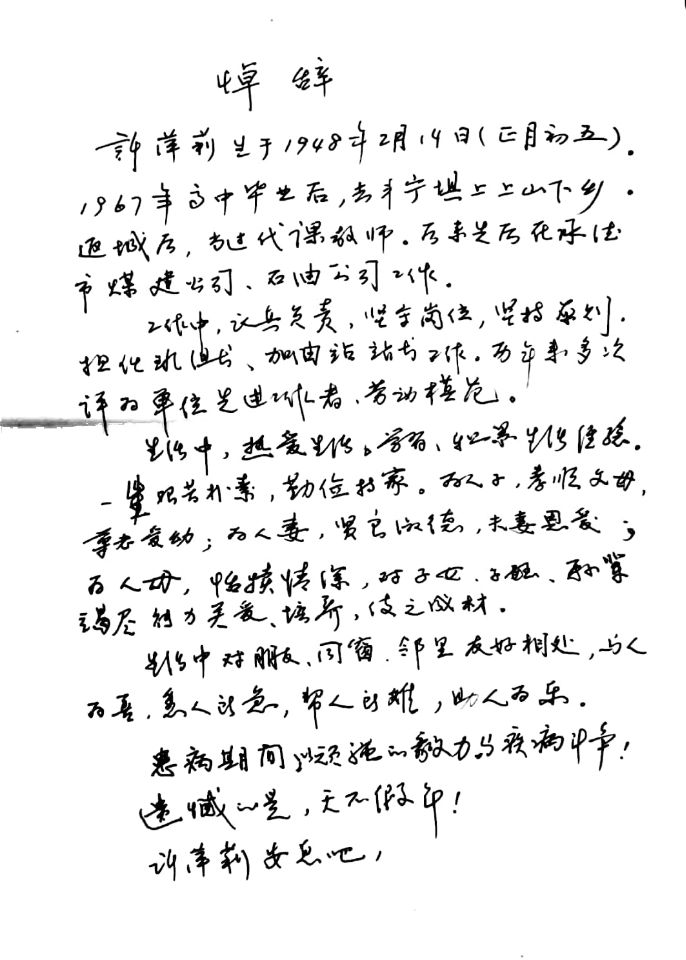 悼辞
許萍莉生于1948年2月14日(正月初五)。
1967年高中毕业后,去丰宁坝上上山下乡。
返城后,当过代课教师。后来先后在承德
市煤建公司、石油公司工作。
工作中,认真负责,坚守岗位,坚持原则.
担任班组长、加油站站长工作。历年来多次
评为单位先进工作者、劳动模范。
生活中,热爱生活。学习、积累生活经验。
一辈艰苦朴素,勤俭持家。为人子,孝顺父母,
尊老爱幼;为人妻,贤良淑德,夫妻恩爱;
为人母,怡犊情深,对子女、子侄、孙辈
竭尽能力关爱、培养,使之成材.
生活中对朋友、同窗.邻里友好相处,与人
为善.急人的急,帮人的难,助人为乐。
患病期间以顽强的毅力与疾病斗争!
遗憾的是,天不假年!
许萍莉安息吧,